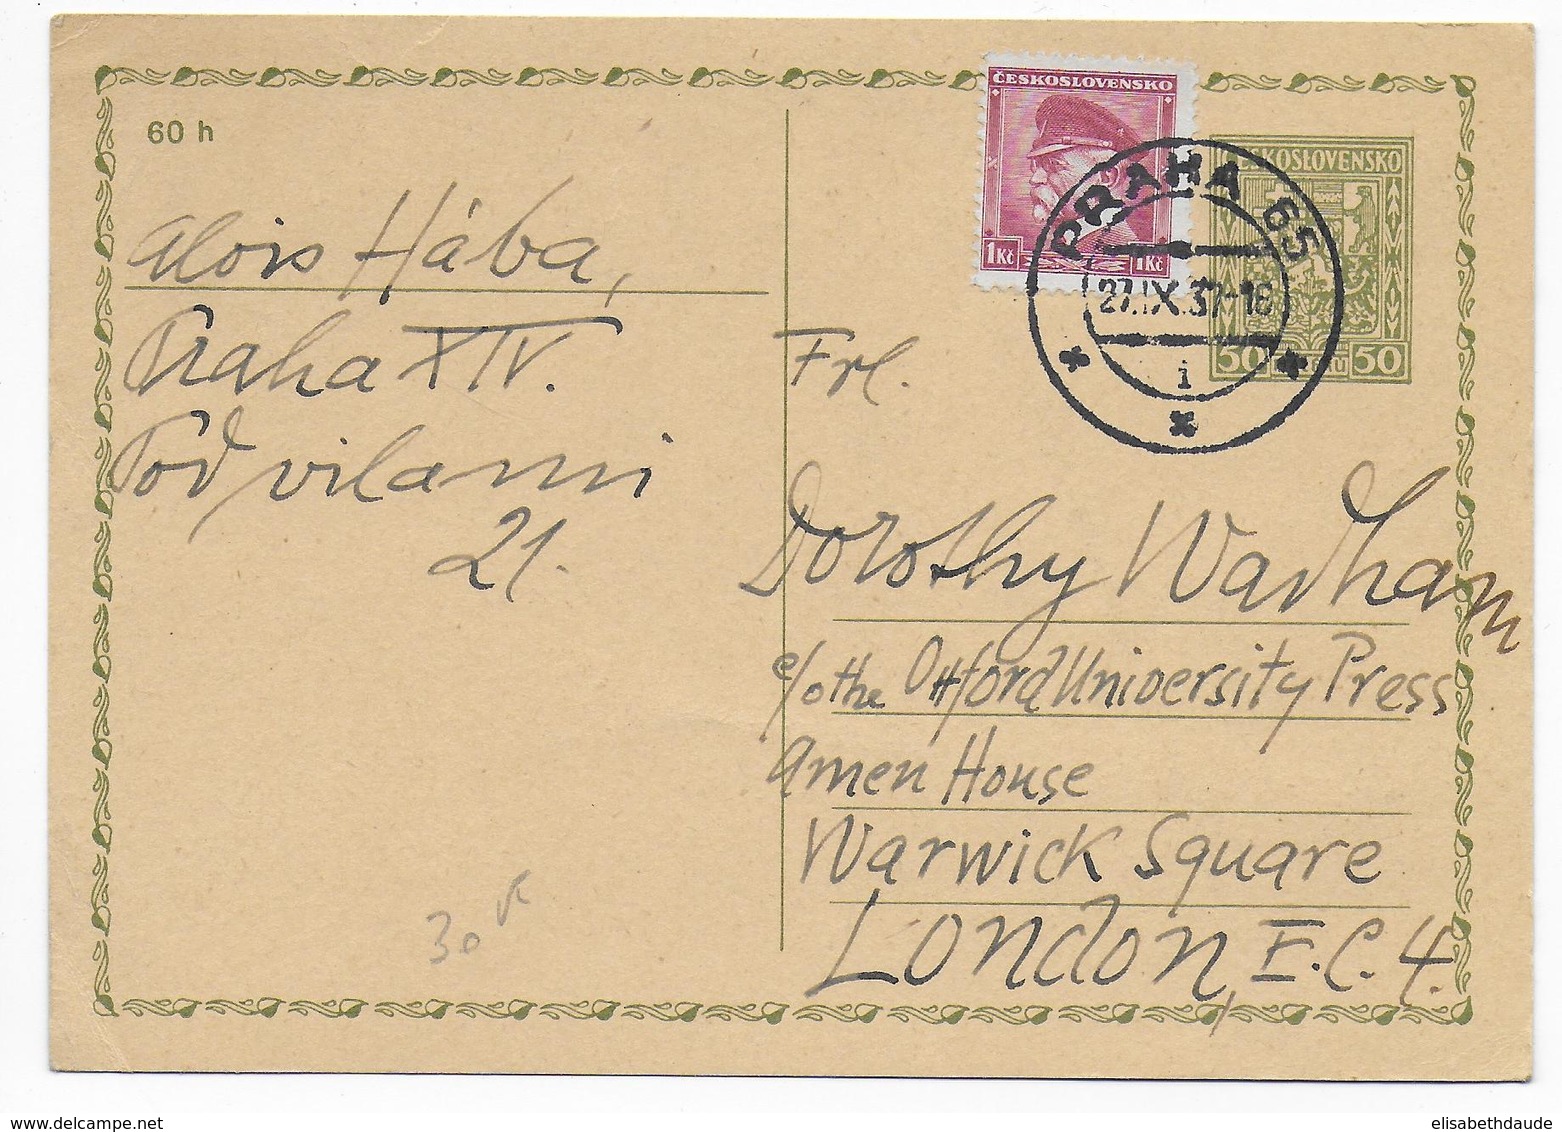 60 h
ČESKOSLOVENSKO
1 Kč 1 Kč
ČESKOSLOVENSKO
50 50
PRAHA 65
27.IX.37-18
1
Alois Hába,
Praha XIV.
Pod vilami
21.
Frl.
Dorothy Wadham
c/o the Oxford University Press
Amen House
Warwick Square
London, E.C.4.
30
elisabethdaude